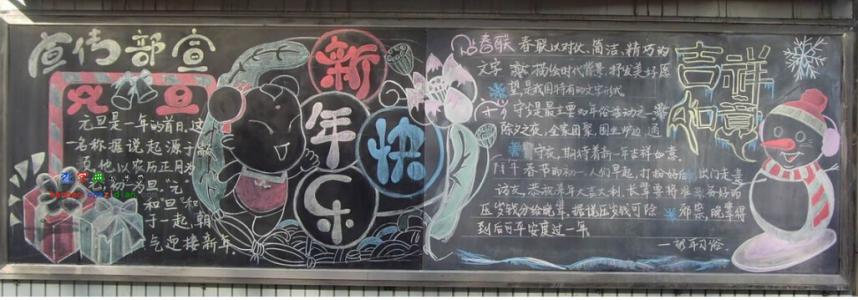 宣传部宣
元旦
元旦是一年的首日,这
一名称据说起源于
以农历正月为
元,初一为旦。元
和旦 和
于一起,朝
气迎接新年.
新
年
快
乐
贴春联 春联以对仗、简洁、精巧的
文字 描绘时代背景,抒发美好愿
望,是我国特有的文学形式
守岁是最主要的年俗活动之一
除夕之夜,全家团聚,围坐炉边,通
守夜,期待着新一年吉祥如意.
拜年 春节的初一,人们早起,打扮好后 出门走亲
访友,恭祝来年大吉大利,长辈要将准备好的
压岁钱分给晚辈,据说压岁钱可除 邪祟,晚辈得
到后可平安度过一年.
一新年习俗.
吉祥
如意